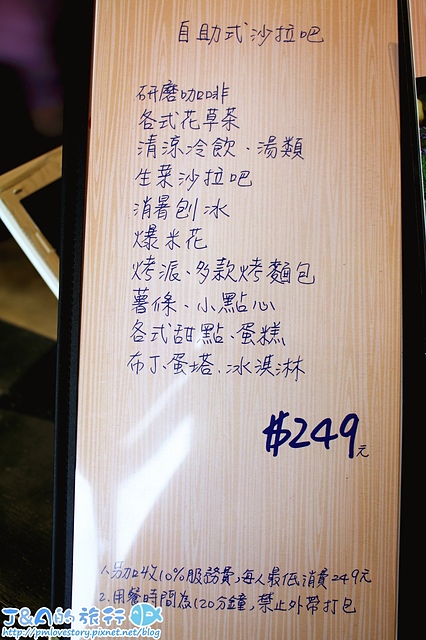 自助式沙拉吧
研磨咖啡
各式花草茶
清涼冷飲、湯類
生菜沙拉吧
消暑刨冰
爆米花
烤派、多款烤麵包
薯條、小點心
各式甜點、蛋糕
布丁、蛋塔、冰淇淋
$249元
1.另加收10%服務費,每人最低消費249元
2.用餐時間為120分鐘,禁止外帶打包
J&A的旅行
http://pmlovestory.pixnet.net/blog